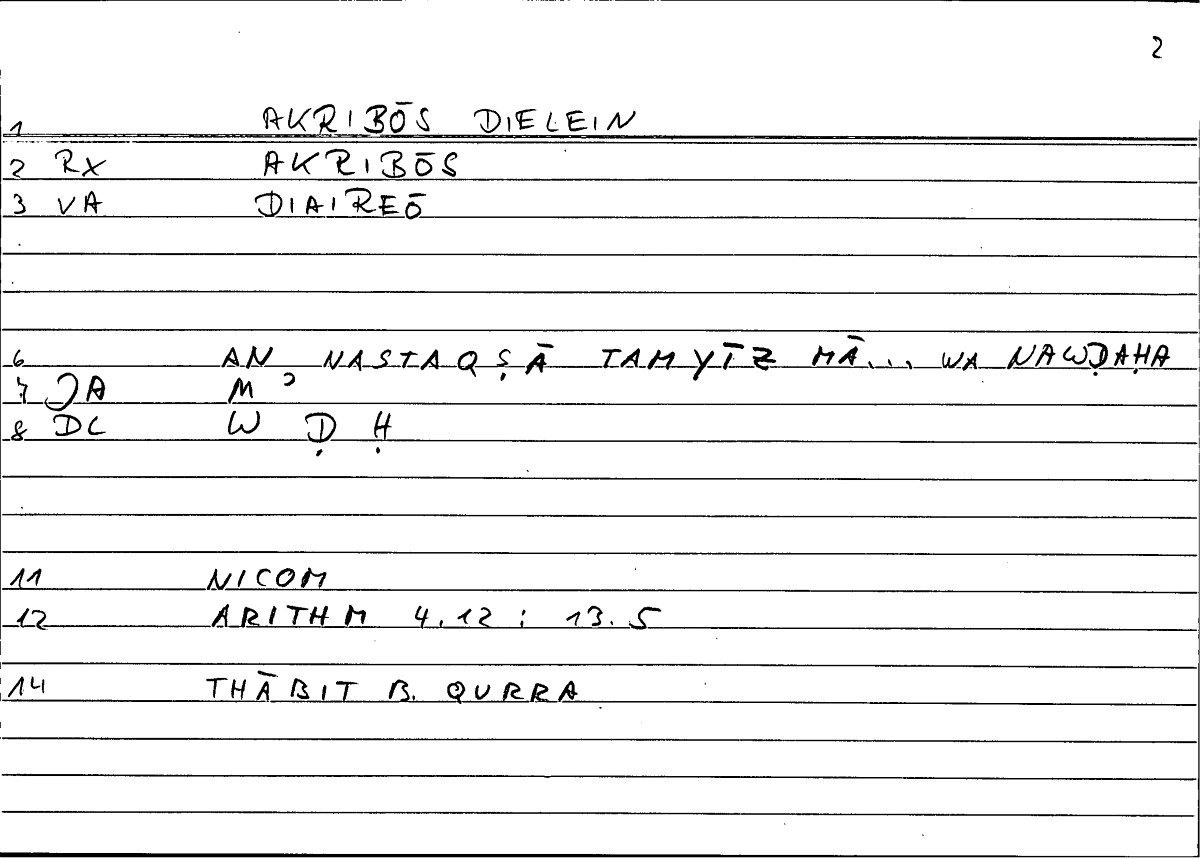 2
1 AKRIBŌS DIELEIN
2 RX AKRIBŌS
3 VA DIAIREŌ
6 AN NASTAQṢĀ TAMYĪZ MĀ... WA NAWḌAḤA
7 JA M ʾ
8 DC W Ḍ Ḥ
11 NICOM
12 ARITHM 4.12 ; 13.5
14 THĀBIT B. QURRA